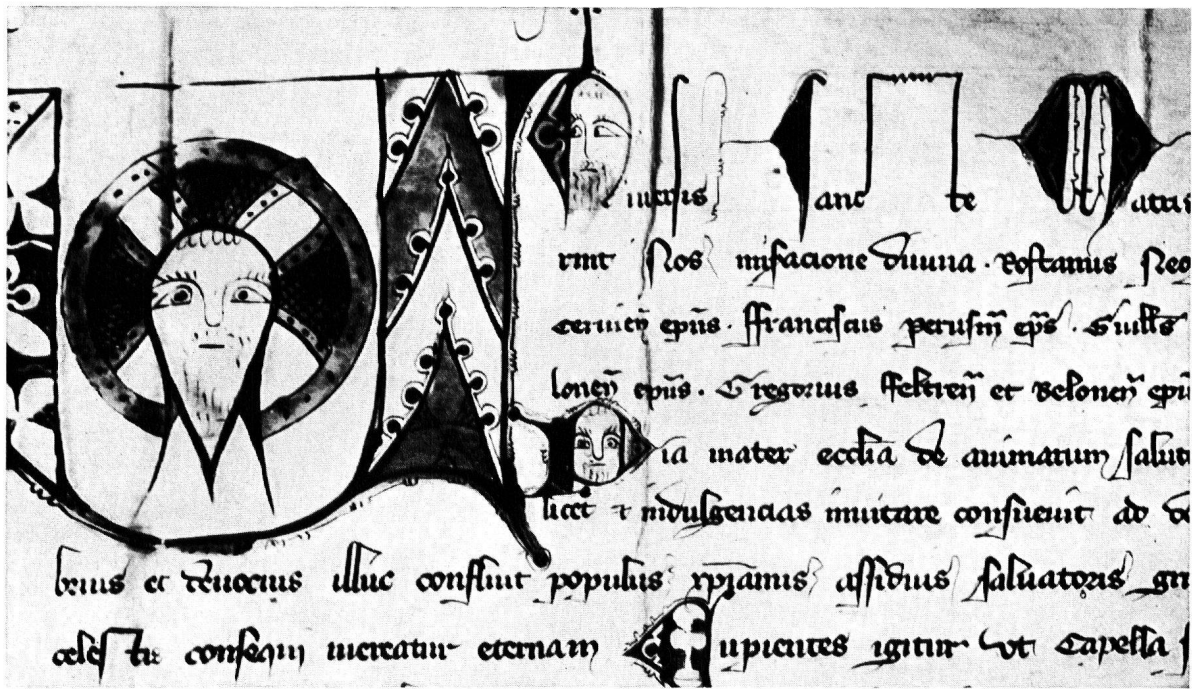 Uniuersis Sancte Matris
rint Nos misacione diuina . Rostanus Neo
cerineñ ep̄us . ffranciscus perusiñ ep̄s . Guill̄s
loneñ ep̄us . Gregorius ffeltreñ et Beloneñ ep̄u
Pia mater ecclīa de animarum salut
licet ⁊ indulgencias inuitare consueuit ad de
brius et deuocius illuc confluit populus xp̄ianus assiduis saluatoris gr
celestis consequi mereatur eternam Cupientes igitur vt Capella s